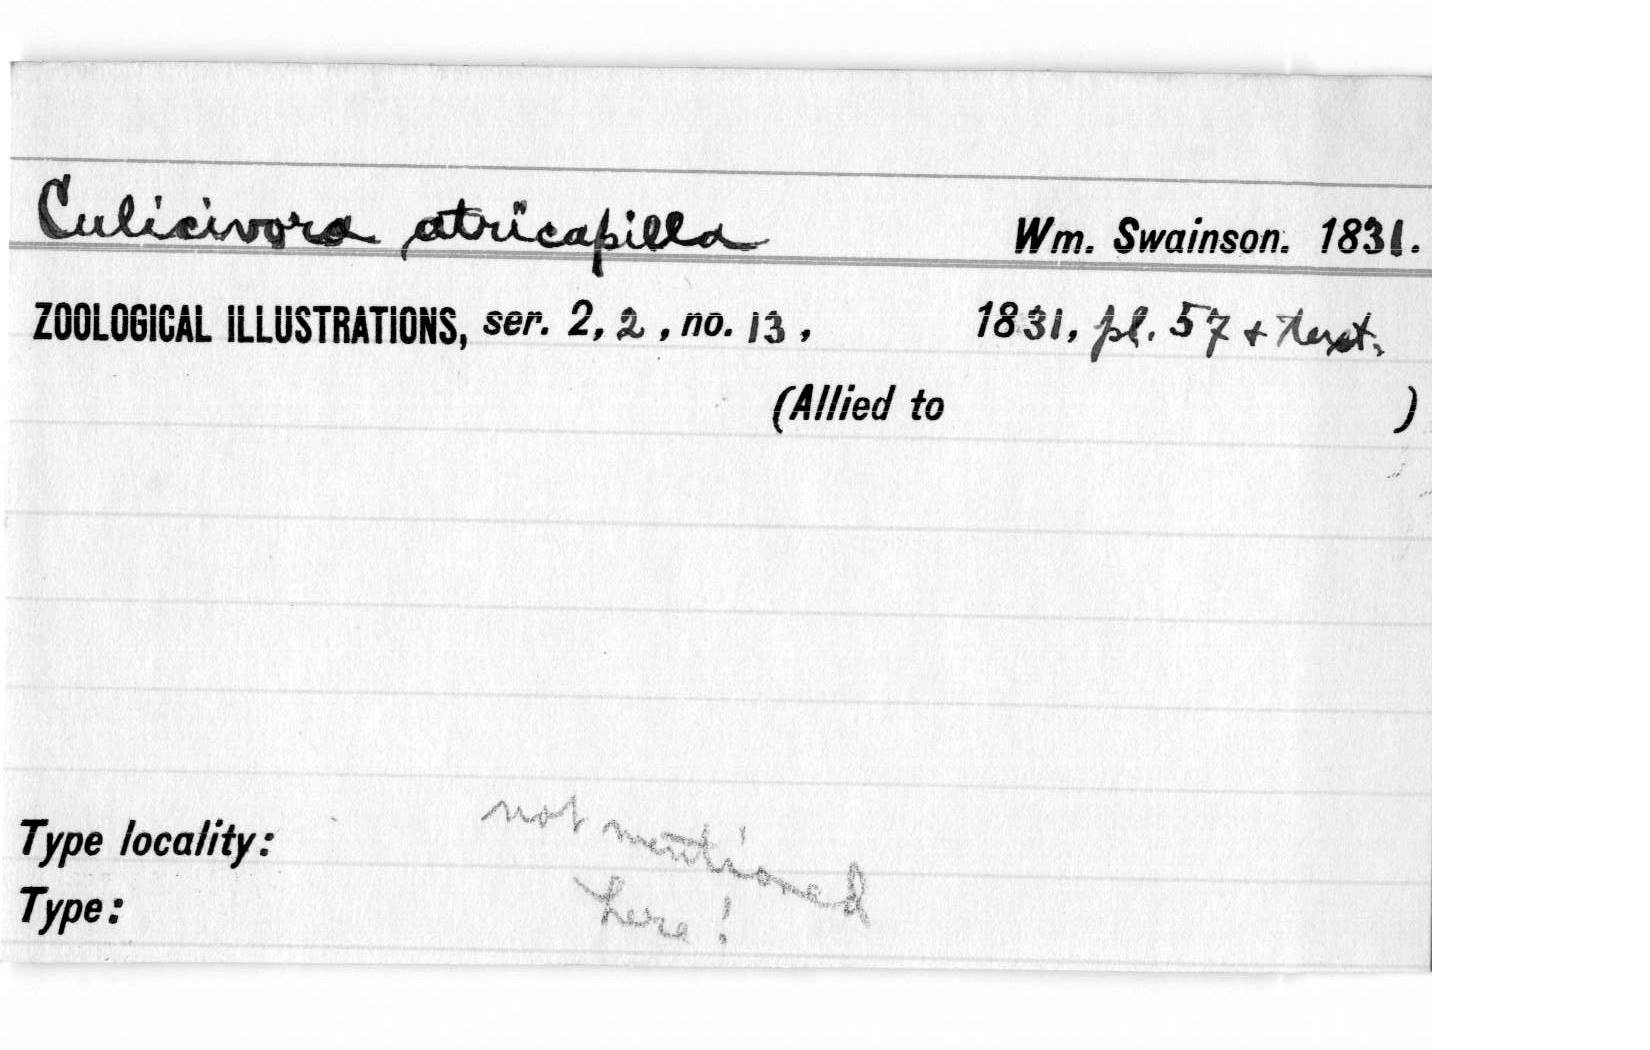 Culicivora atricapilla Wm. Swainson. 1831.
ZOOLOGICAL ILLUSTRATIONS, ser. 2, 2, no. 13, 1831, pl. 57 + text.
(Allied to )
Type locality:
Type:
not mentioned
here!